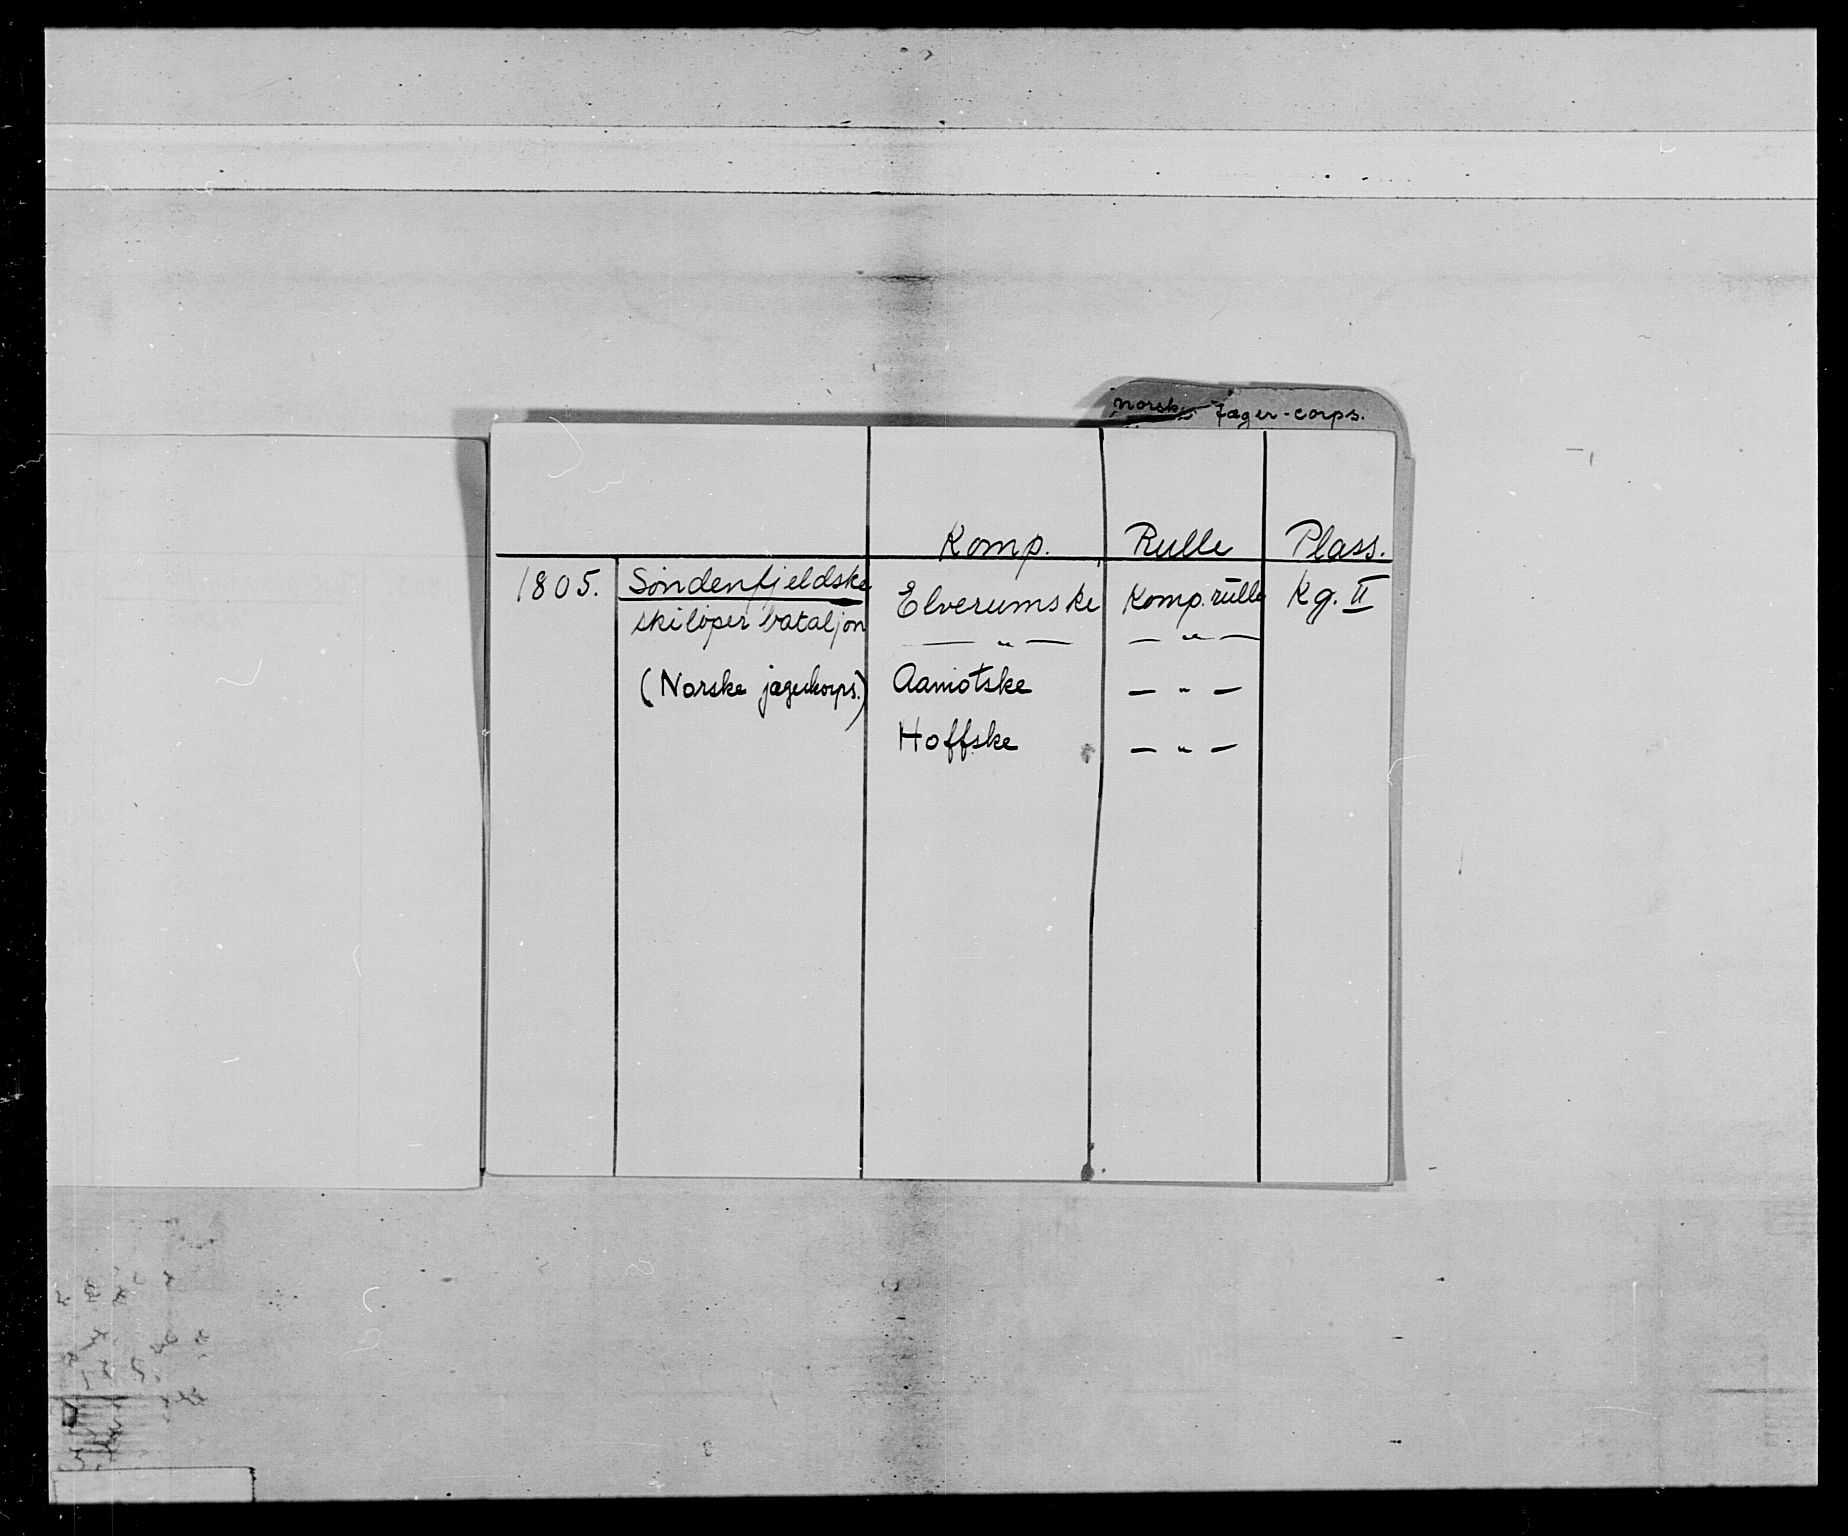 Norske Jæger-corps.
Komp. Rulle Plass.
1805. Søndenfjeldske Elverumske Komp. rulle Kg. II
skiløper bataljon — " — — " —
(Norske jægerkorps.) Aamotske — " —
Hoffske — " —